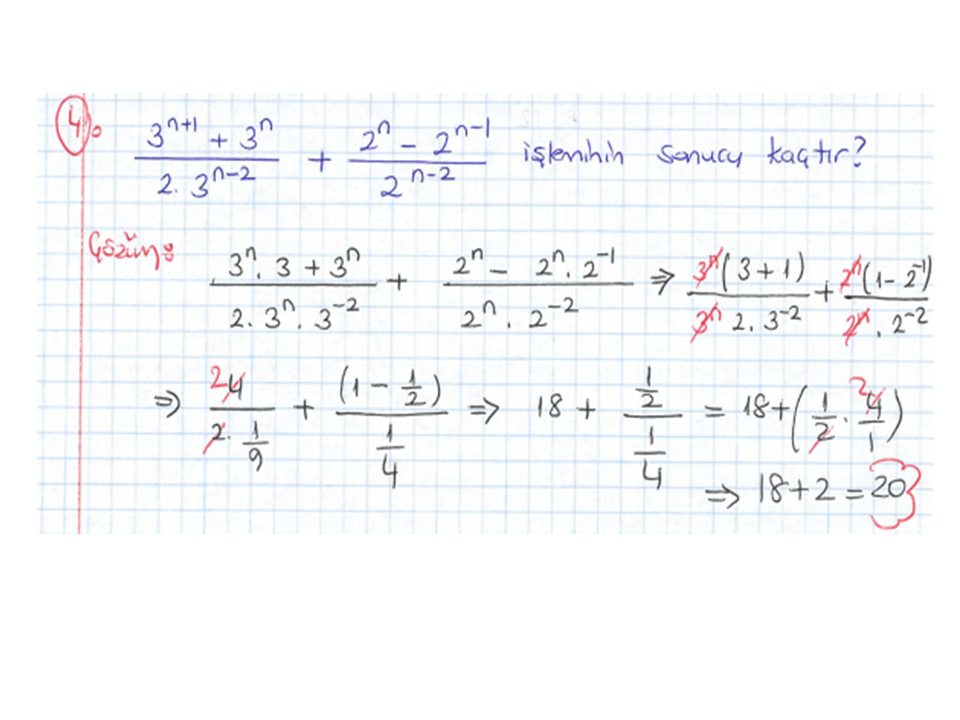 4. (3^(n+1) + 3^n)/(2.3^(n-2)) + (2^n - 2^(n-1))/(2^(n-2)) işleminin sonucu kaçtır?
Çözüm:
(3^n.3 + 3^n)/(2.3^n.3^(-2)) + (2^n - 2^n.2^(-1))/(2^n.2^(-2)) ⇒ (3^n(3+1))/(3^n 2.3^(-2)) + (2^n(1-2^(-1)))/(2^n.2^(-2))
⇒ (2 4)/(2.(1/9)) + (1-(1/2))/(1/4) ⇒ 18 + (1/2)/(1/4) = 18+((1/2).(2 4/1))
⇒ 18+2=20